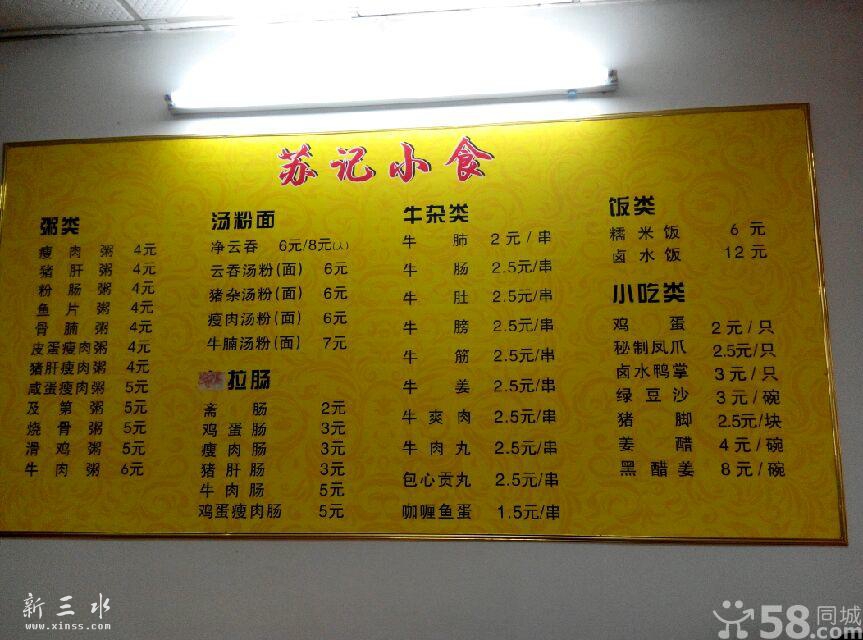 苏记小食
粥类
瘦肉粥 4元
猪肝粥 4元
粉肠粥 4元
鱼片粥 4元
骨腩粥 4元
皮蛋瘦肉粥 4元
猪肝瘦肉粥 4元
咸蛋瘦肉粥 5元
及第粥 5元
烧骨粥 5元
滑鸡粥 5元
牛肉粥 6元
汤粉面
净云吞 6元/8元(大)
云吞汤粉(面) 6元
猪杂汤粉(面) 6元
瘦肉汤粉(面) 6元
牛腩汤粉(面) 7元
拉肠
斋肠 2元
鸡蛋肠 3元
瘦肉肠 3元
猪肝肠 3元
牛肉肠 5元
鸡蛋瘦肉肠 5元
牛杂类
牛肺 2元/串
牛肠 2.5元/串
牛肚 2.5元/串
牛膀 2.5元/串
牛筋 2.5元/串
牛姜 2.5元/串
牛爽肉 2.5元/串
牛肉丸 2.5元/串
包心贡丸 2.5元/串
咖喱鱼蛋 1.5元/串
饭类
糯米饭 6元
卤水饭 12元
小吃类
鸡蛋 2元/只
秘制凤爪 2.5元/只
卤水鸭掌 3元/只
绿豆沙 3元/碗
猪脚 2.5元/块
姜醋 4元/碗
黑醋姜 8元/碗
新三水
www.xinss.com
58同城
.com